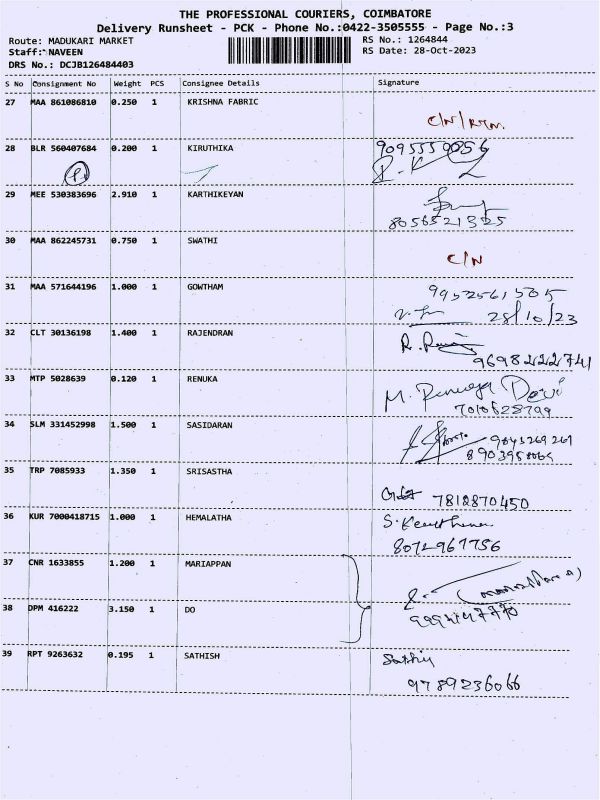 THE PROFESSIONAL COURIERS, COIMBATORE
Delivery Runsheet - PCK - Phone No.:0422-3505555 - Page No.:3
Route: MADUKARI MARKET RS No.: 1264844
Staff: NAVEEN RS Date: 28-Oct-2023
DRS No.: DCJB126484403
S No Consignment No Weight PCS Consignee Details Signature
27 MAA 861086810 0.250 1 KRISHNA FABRIC
C/N/RTN.
28 BLR 560407684 0.200 1 KIRUTHIKA 9095550056
29 MEE 530383696 2.910 1 KARTHIKEYAN
8056521325
30 MAA 862245731 0.750 1 SWATHI
C/N
31 MAA 571644196 1.000 1 GOWTHAM
28/10/23
32 CLT 30136198 1.400 1 RAJENDRAN
9698222741
33 MTP 5028639 0.120 1 RENUKA
M. Renuga Devi
7010628799
34 SLM 331452998 1.500 1 SASIDARAN
35 TRP 7085933 1.350 1 SRISASTHA
7812870450
36 KUR 7000418715 1.000 1 HEMALATHA
8072967756
37 CNR 1633855 1.200 1 MARIAPPAN
38 DPM 416222 3.150 1 DO
39 RPT 9263632 0.195 1 SATHISH
9789236066